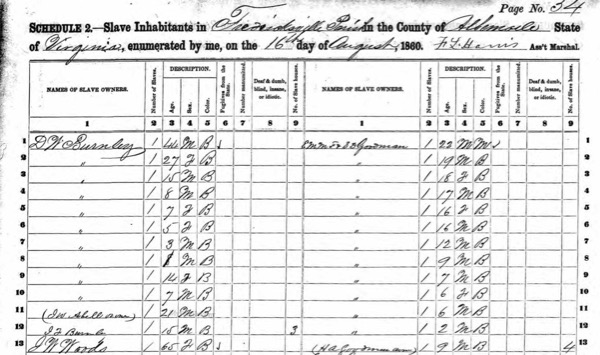 Page No. 34
SCHEDULE 2.—Slave Inhabitants in Fredericksville Parish in the County of Albemarle State
of Virginia, enumerated by me, on the 16th day of August, 1860. Ass't Marshal.
NAMES OF SLAVE OWNERS. Number of Slaves. DESCRIPTION. Age. Sex. Color. Fugitives from the State. Number manumitted. Deaf & dumb, blind, insane, or idiotic. No. of Slave houses. NAMES OF SLAVE OWNERS. Number of Slaves. DESCRIPTION. Age. Sex. Color. Fugitives from the State. Number manumitted. Deaf & dumb, blind, insane, or idiotic. No. of Slave houses.
1 2 3 4 5 6 7 8 9 1 2 3 4 5 6 7 8 9
1 D W Burnley 1 44 M B Goodman 1 22 M M 1
2 " 1 27 F B " 1 19 M B 2
3 " 1 15 M B " 1 18 F B 3
4 " 1 8 M B " 1 17 M B 4
5 " 1 7 F B " 1 16 F B 5
6 " 1 5 F B " 1 16 M B 6
7 " 1 3 M B " 1 12 M B 7
8 " 1 M B " 1 9 M B 8
9 " 1 14 F B " 1 7 M B 9
10 " 1 7 M B " 1 6 F B 10
11 1 21 M B " 1 6 M B 11
12 1 15 M B 3 " 1 2 M B 12
13 J W Woods 1 65 F B (H A Goodman) 1 9 M B 4 13